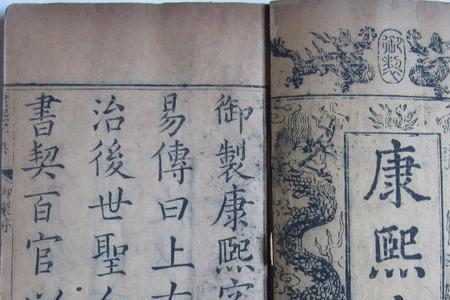 御製
康熙
御製康熙字
易傳曰上古
治後世聖人
書契百官以
御製序